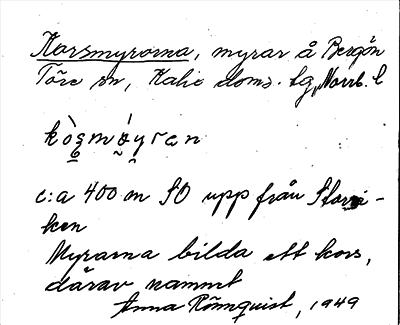 Korsmyrorna, myrar å Bergön
Töre sn, Kalix doms. tg, Norrb. l
c:a 400 m SO upp från Storvi-
ken
Myrarna bilda ett kors,
därav namnet
Anna Rönnquist, 1949